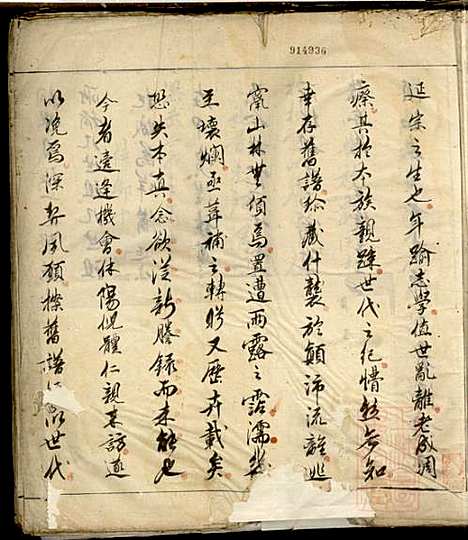 914936
延宗之生七年踰志學值世亂離老成凋
瘵其於本族親踈世代之紀懵然無知
幸存舊譜珍藏什襲於顛沛流離逃
竄山林無價焉置遭雨露之霑濡幾
至壞爛亟葺補之轉眄又歷卉載矣
恐失本真念欲從新謄錄而未能也
今者遠逢機會休陽倪體仁親來訪遂
以說焉深契夙願據舊譜 以世代